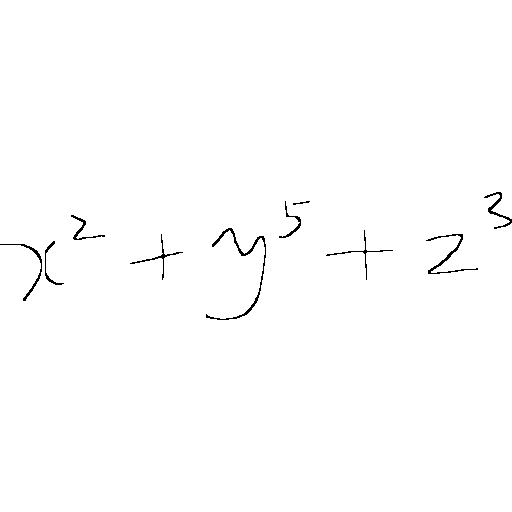 x² + y⁵ + z³